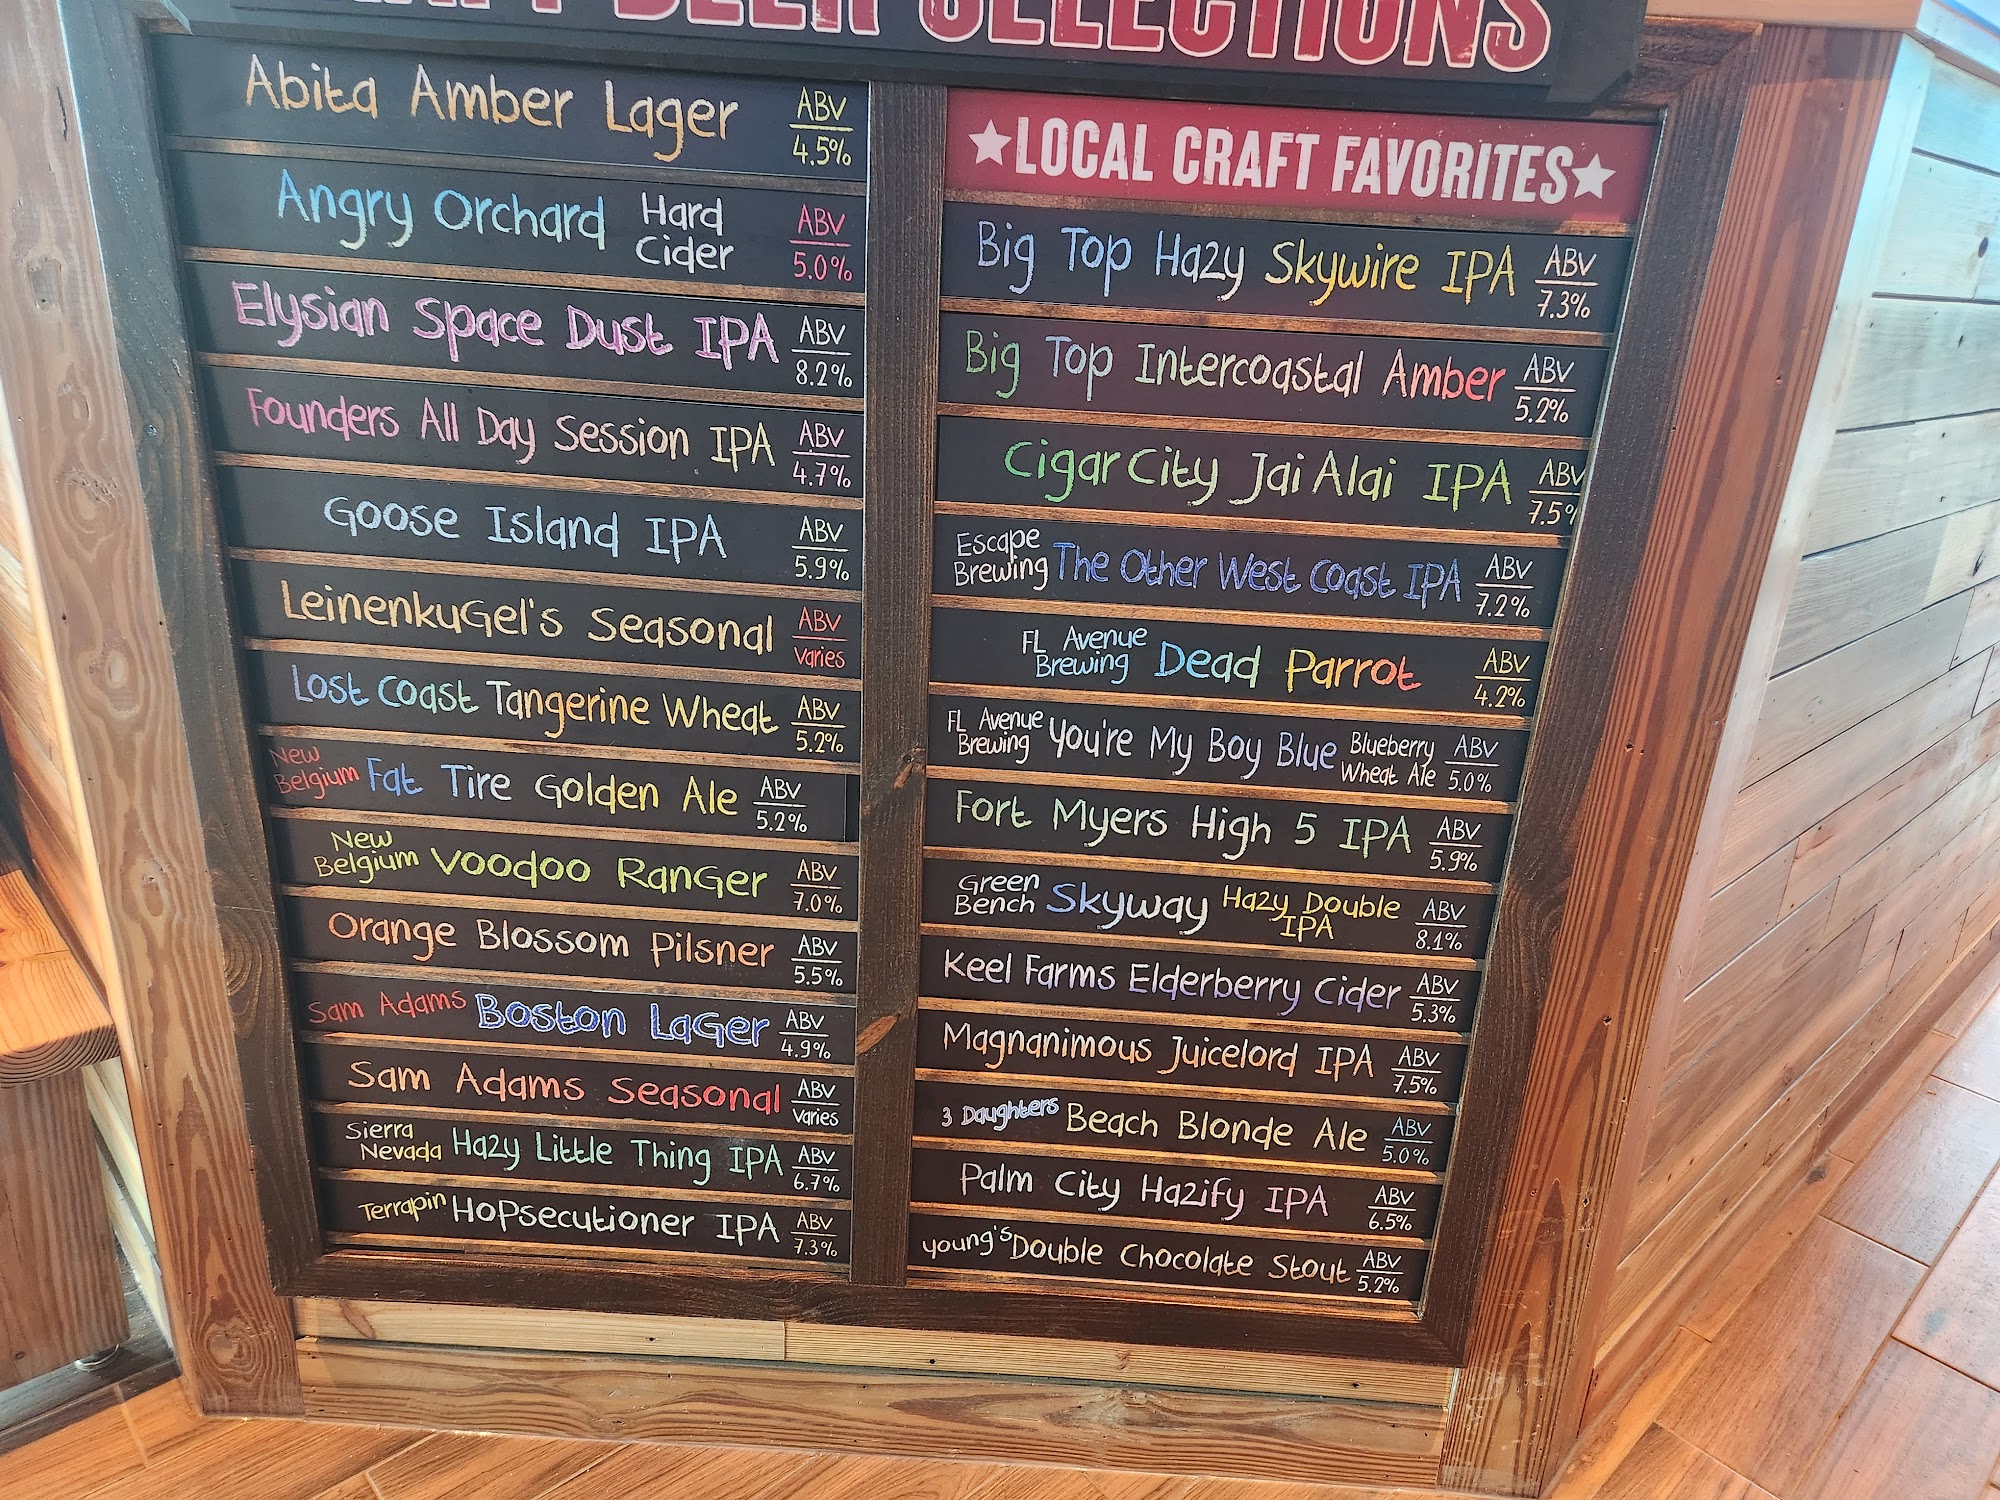 BEER SELECTIONS
Abita Amber Lager ABV 4.5%
Angry Orchard Hard Cider ABV 5.0%
Elysian Space Dust IPA ABV 8.2%
Founders All Day Session IPA ABV 4.7%
Goose Island IPA ABV 5.9%
LeinenkuGel's Seasonal ABV varies
Lost Coast Tangerine Wheat ABV 5.2%
New Belgium Fat Tire Golden Ale ABV 5.2%
New Belgium Voodoo RanGer ABV 7.0%
Orange Blossom Pilsner ABV 5.5%
Sam Adams Boston LaGer ABV 4.9%
Sam Adams Seasonal ABV varies
Sierra Nevada Hazy Little Thing IPA ABV 6.7%
Terrapin Hopsecutioner IPA ABV 7.3%
★LOCAL CRAFT FAVORITES★
Big Top Hazy Skywire IPA ABV 7.3%
Big Top Intercoastal Amber ABV 5.2%
Cigar City Jai Alai IPA ABV 7.5%
Escape Brewing The Other West Coast IPA ABV 7.2%
FL Avenue Brewing Dead Parrot ABV 4.2%
FL Avenue Brewing You're My Boy Blue Blueberry Wheat Ale ABV 5.0%
Fort Myers High 5 IPA ABV 5.9%
Green Bench Skyway Hazy Double IPA ABV 8.1%
Keel Farms Elderberry Cider ABV 5.3%
Magnanimous Juicelord IPA ABV 7.5%
3 Daughters Beach Blonde Ale ABV 5.0%
Palm City Hazify IPA ABV 6.5%
young's Double Chocolate Stout ABV 5.2%